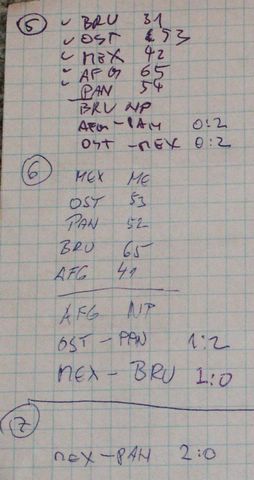 5
✓ BRU 31
✓ OST 53
✓ MEX 42
✓ AFG 65
✓ PAN 54
BRU NP
AFG - PAN 0:2
OST - MEX 0:2
6
MEX ME
OST 53
PAN 52
BRU 65
AFG 41
AFG NP
OST - PAN 1:2
MEX - BRU 1:0
7
MEX - PAN 2:0